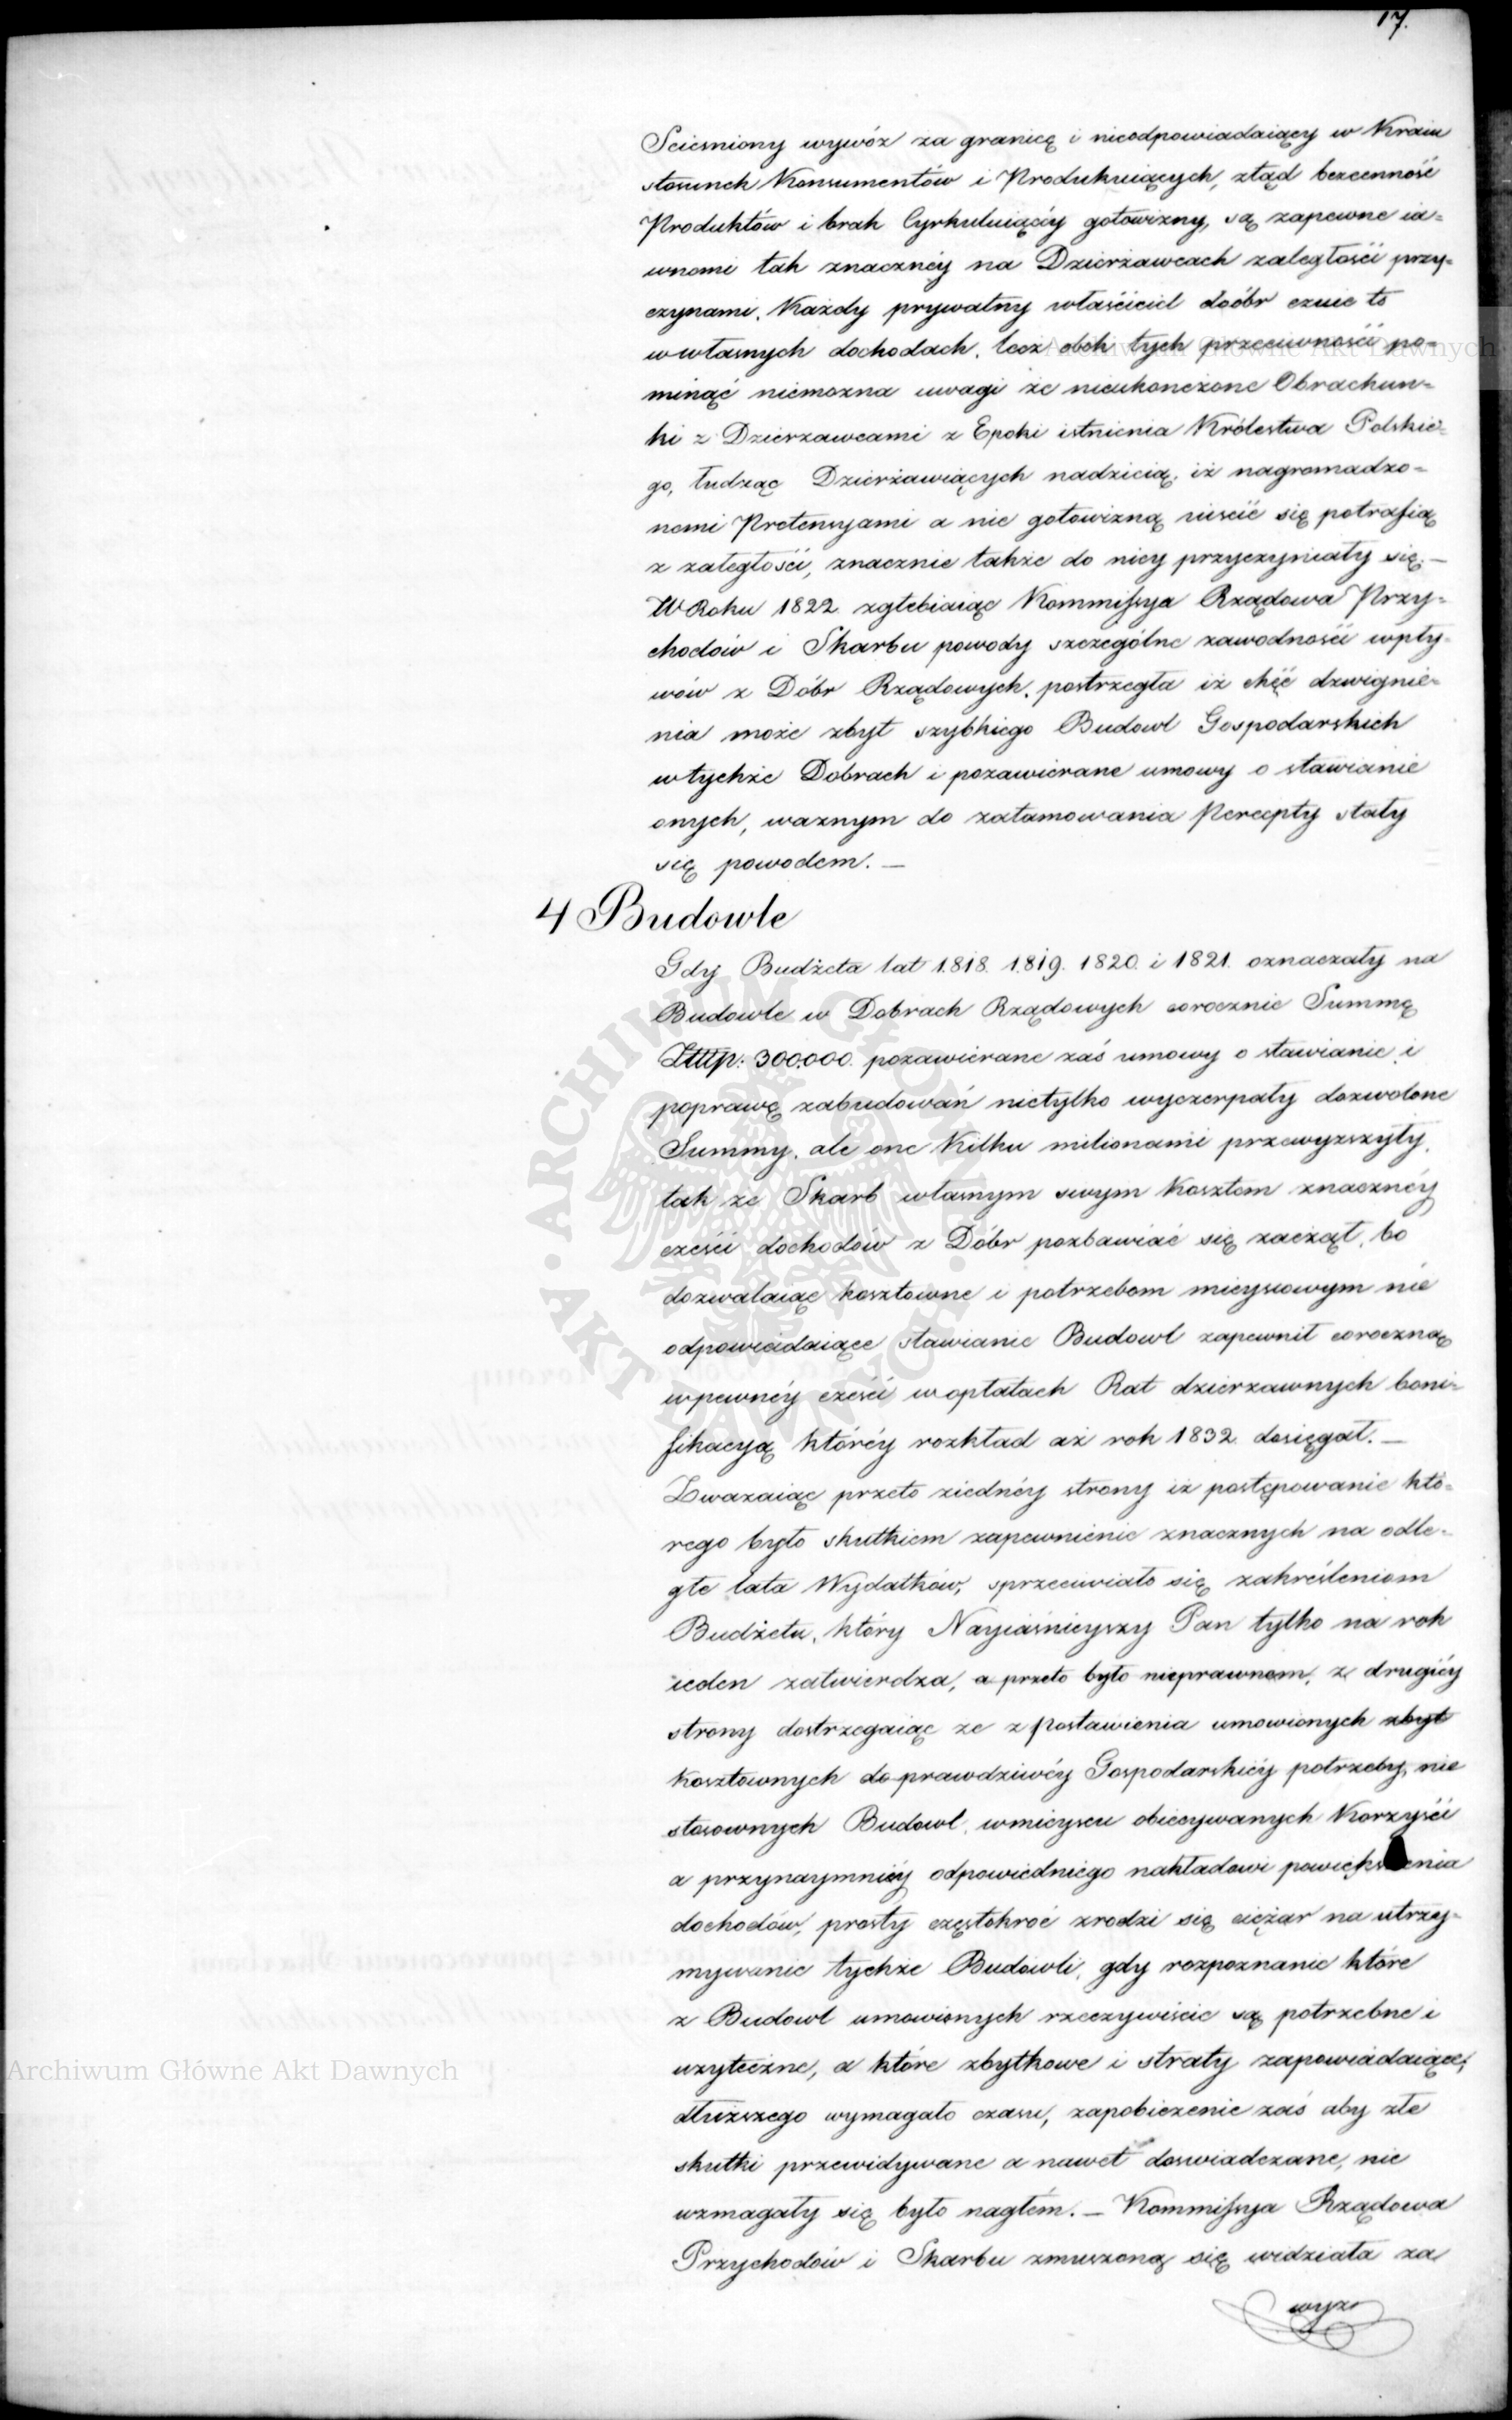 17.
Scieśniony wywóz za granicę i nieodpowiadaiący w Kraiu
stosunek Konsumentów i Produkuiących, ztąd bezcenność
Produktów i brak Cyrkuluiącéy gotowizny, są zapewne ia-
wnemi tak znacznéy na Dzierżawcach zaległości przy-
czynami. Każdy prywatny właściciel doóbr czuie to
w własnych dochodach, lecz obok tych przeciwności po-
minąć niemożna uwagi że nieukończone Obrachun-
ki z Dzierzawcami z Epoki istnienia Królestwa Polskie-
go, łudząc Dzierżawiących nadzieią, iż nagromadzo-
nemi Pretensyami a nie gotowizną uiścić się potrafią
z zaległości, znacznie także do niey przyczyniały się. —
W Roku 1822 zgłebiaiąc Kommissya Rządowa Przy-
chodów i Skarbu powody szczególne zawodności wpły-
wów z Dóbr Rządowych, postrzegła iż chęć dzwignie-
nia może zbyt szybkiego Budowl Gospodarskich
w tychże Dobrach i pozawierane umowy o stawianie
onych, ważnym do zatamowania Percepty stały
się powodem. —
4 Budowle
Gdy Budżeta lat 1818. 1819. 1820. i 1821. oznaczały na
Budowle w Dobrach Rządowych corocznie Summę
Złttp. 300,000. pozawierane zaś umowy o stawianie i
poprawę zabudowań nietylko wyczerpały dozwolone
Summy, ale one Kilku milionami przewyzszyły,
tak ze Skarb własnym swym Kosztem znacznéy
cześci dochodów z Dóbr pozbawiać się zaczął, bo
dozwalaiąc kosztowne i potrzebom mieyscowym nie
odpowiadaiące stawianie Budowl zapewnił coroczną
w pewnéy cześci w opłatach Rat dzierzawnych boni-
fikacyą któréy rozkład aż rok 1832 dosięgał. —
Zwazaiąc przeto ziednéy strony iż postępowanie któ-
rego było skutkiem zapewnienie znacznych na odle-
głe lata Wydatków, sprzeciwiało się zakreśleniom
Budżetu, który Nayiaśnieyszy Pan tylko na rok
ieden zatwierdza, a przeto było nieprawnem, z drugiéy
strony dostrzegaiąc ze z postawienia umowionych zbyt
kosztownych do prawdziwéy Gospodarskiéy potrzeby, nie
stosownych Budowl, w mieyscu obiecywanych Korzyści
a przynaymniéy odpowiedniego nakładowi powiększenia
dochodów, prosty częstokroć zrodzi się ciężar na utrzy-
mywanie tychże Budowli, gdy rozpoznanie które
z Budowl umowionych rzeczywiście są potrzebne i
uzyteczne, a które zbytkowe i straty zapowiadaiące,
dłuższego wymagało czasu, zapobieżenie zaś aby złe
skutki przewidywane a nawet doswiadczane, nie
wzmagały się było nagłem. — Kommissya Rządowa
Przychodów i Skarbu zmuszoną się widziała za
wyzn
Archiwum Główne Akt Dawnych
Archiwum Główne Akt Dawnych
ARCHIWUM GŁÓWNE · AKT DAWNYCH ·